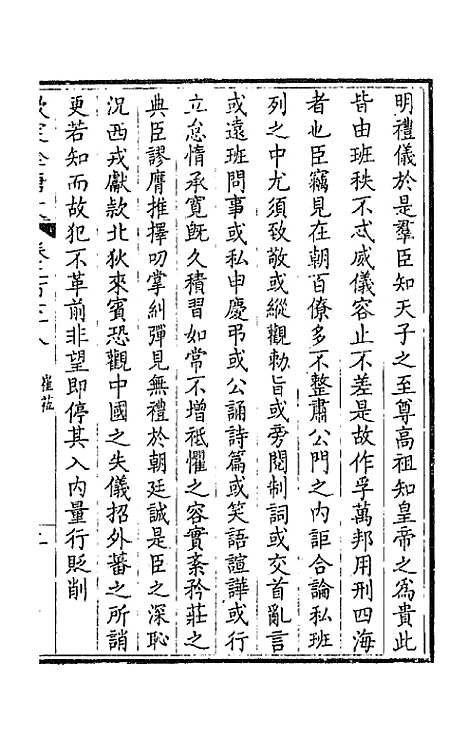 明禮儀於是羣臣知天子之至尊高祖知皇帝之爲貴此
皆由班秩不忒威儀容止不差是故作孚萬邦用刑四海
者也臣竊見在朝百僚多不整肅公門之內詎合論私班
列之中尤須致敬或縱觀勅旨或旁閱制詞或交首亂言
或遠班問事或私申慶弔或公誦詩篇或笑語諠譁或行
立怠惰承寬旣久積習如常不增祗懼之容實紊矜莊之
典臣謬膺推擇叨掌糾彈見無禮於朝廷誠是臣之深恥
況西戎獻款北狄來賓恐觀中國之失儀招外蕃之所誚
更若知而故犯不革前非望即停其入內量行貶削
欽定全唐文 卷二百 八 崔蒞 二